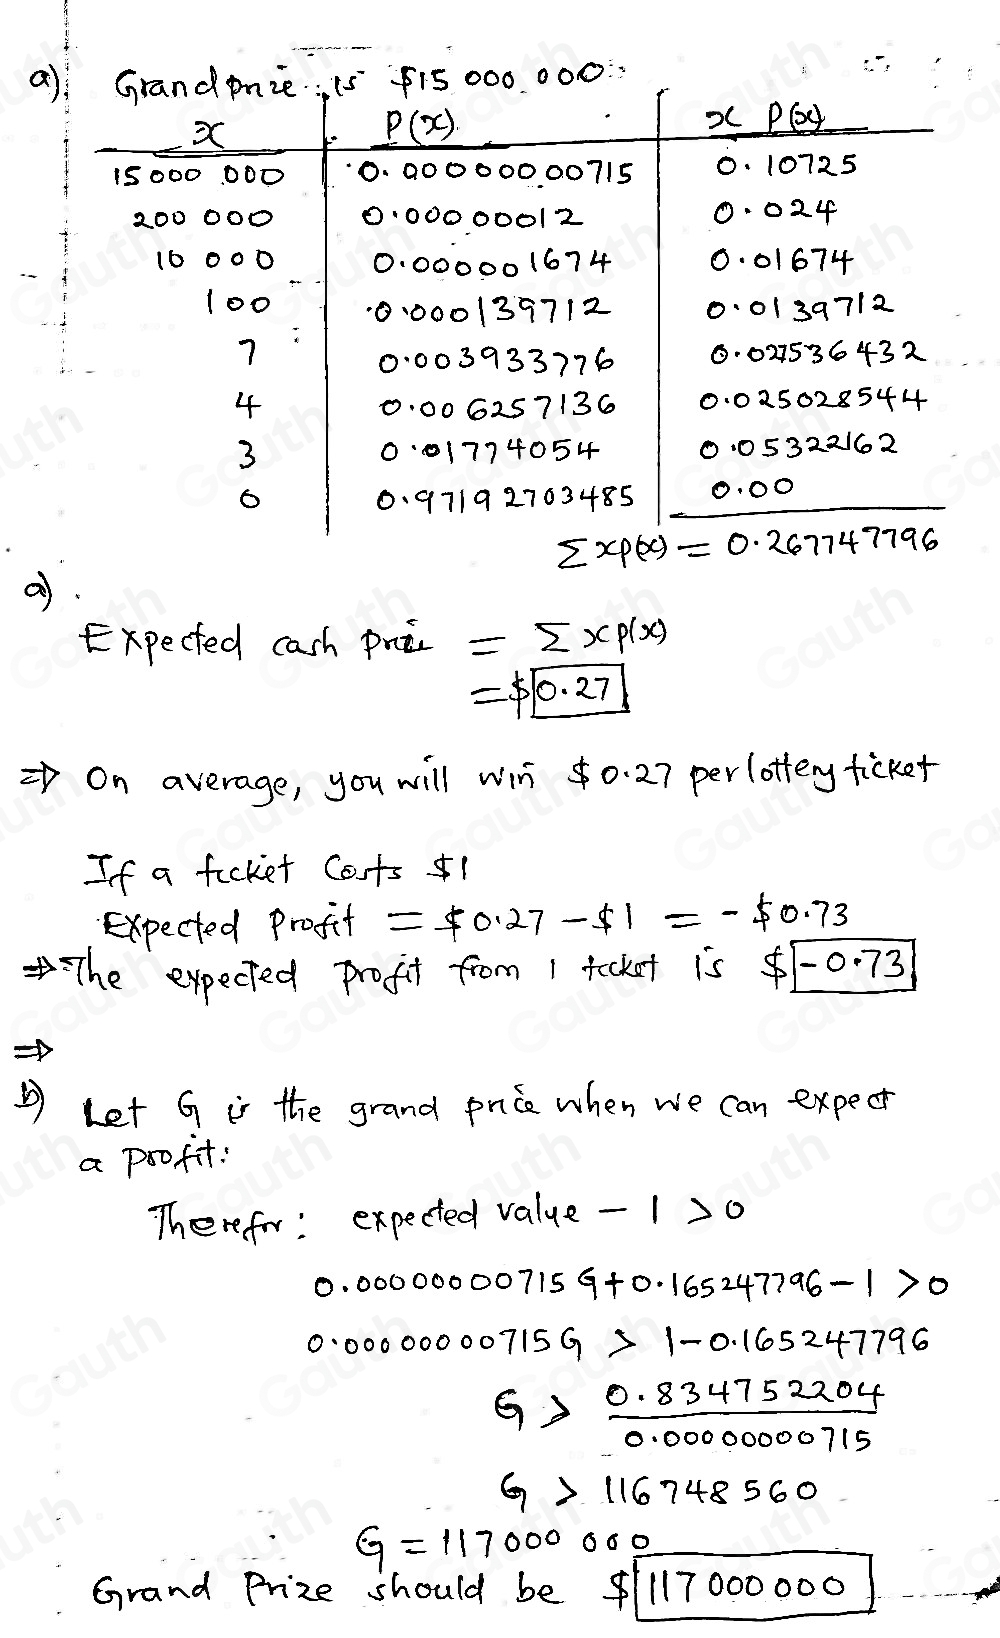 a) Grand prize is $15 000 000
x P(x) x P(x)
15 000 000 0.00000000715 0.10725
200 000 0.00000012 0.024
10 000 0.000001674 0.01674
100 0.000139712 0.0139712
7 0.003933776 0.027536432
4 0.006257136 0.025028544
3 0.01774054 0.05322162
0 0.97192703485 0.00
Σxp(x) = 0.267747796
a)
Expected cash prize = Σxp(x)
= $ 0.27
⇒ On average, you will win $0.27 per lottery ticket
If a ticket Costs $1
Expected Profit = $0.27 - $1 = -$0.73
⇒ The expected profit from 1 ticket is $ -0.73
⇒
b) Let G is the grand price when we can expect
a profit:
Therefor: expected value - 1 > 0
0.00000000715 G + 0.165247796 - 1 > 0
0.00000000715 G > 1 - 0.165247796
G > 0.834752204
0.00000000715
G > 116748560
G = 117000 000
Grand Prize should be $ 117 000 000